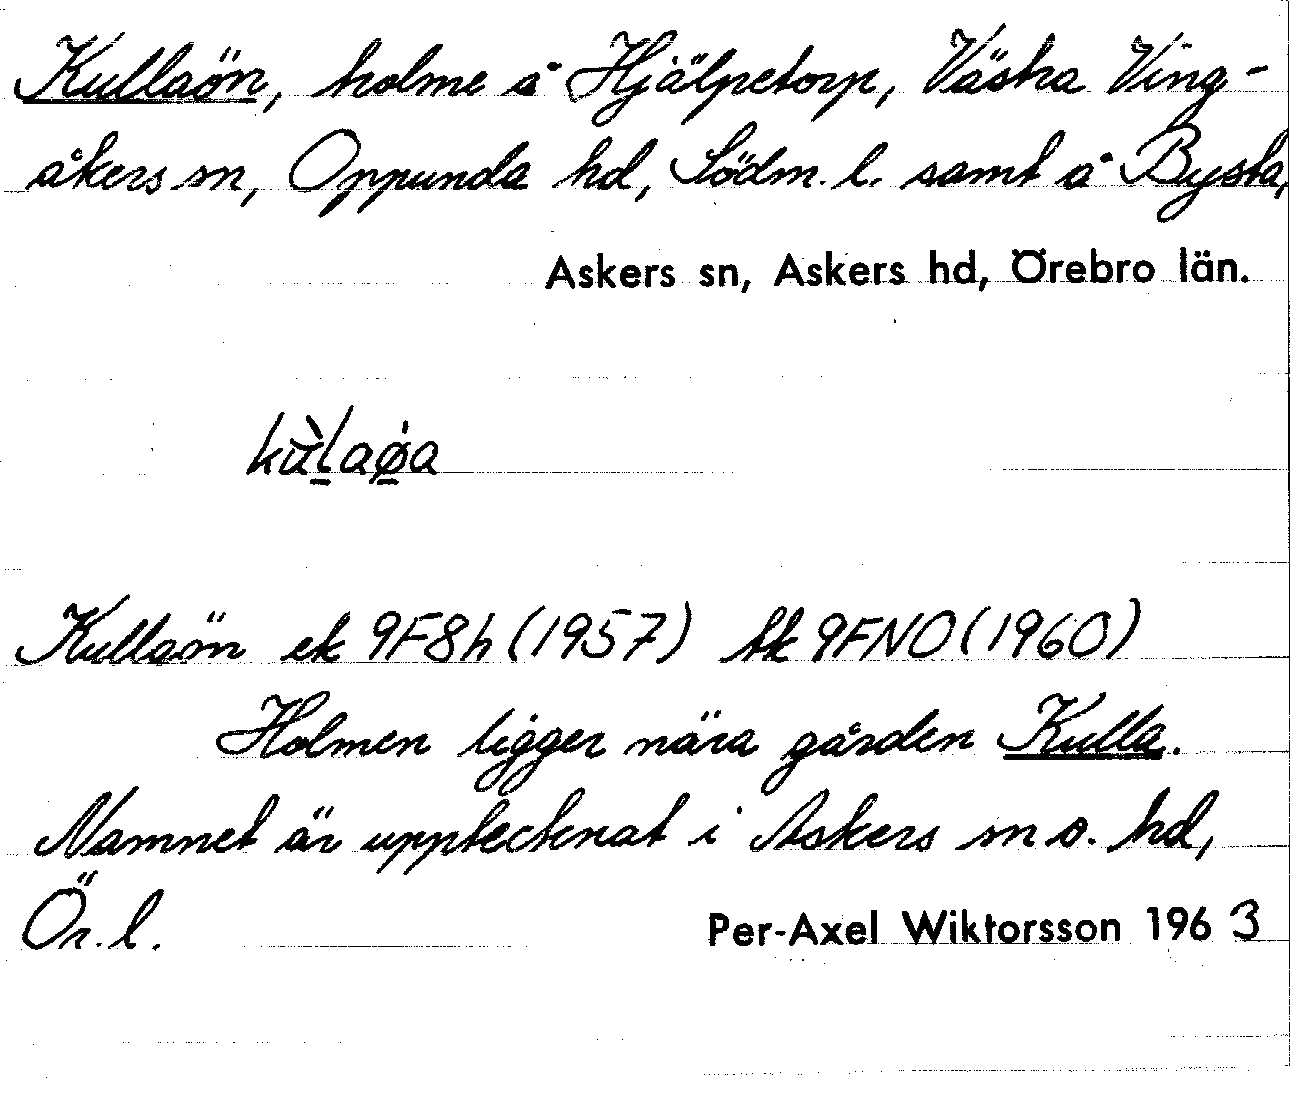 Kullaön, holme å Hjälpetorp, Västra Ving-
åkers sn, Oppunda hd, Södm. l. samt å Bysta,
Askers sn, Askers hd, Örebro län.
kùlaøa
Kullaön ek 9F8h (1957) tk 9FNO (1960)
Holmen ligger nära gården Kulla.
Namnet är upptecknat i Askers sn o. hd,
Ör. l.
Per-Axel Wiktorsson 1963